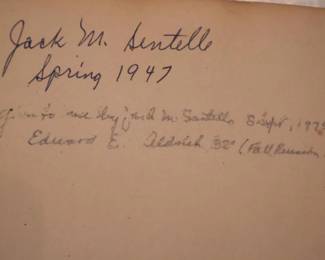 Jack M. Sentelle
Spring 1947
Given to me by Jack M. Sentelle, 8 Sept, 197
Edward E. Aldrich 32° (Fall Reunion